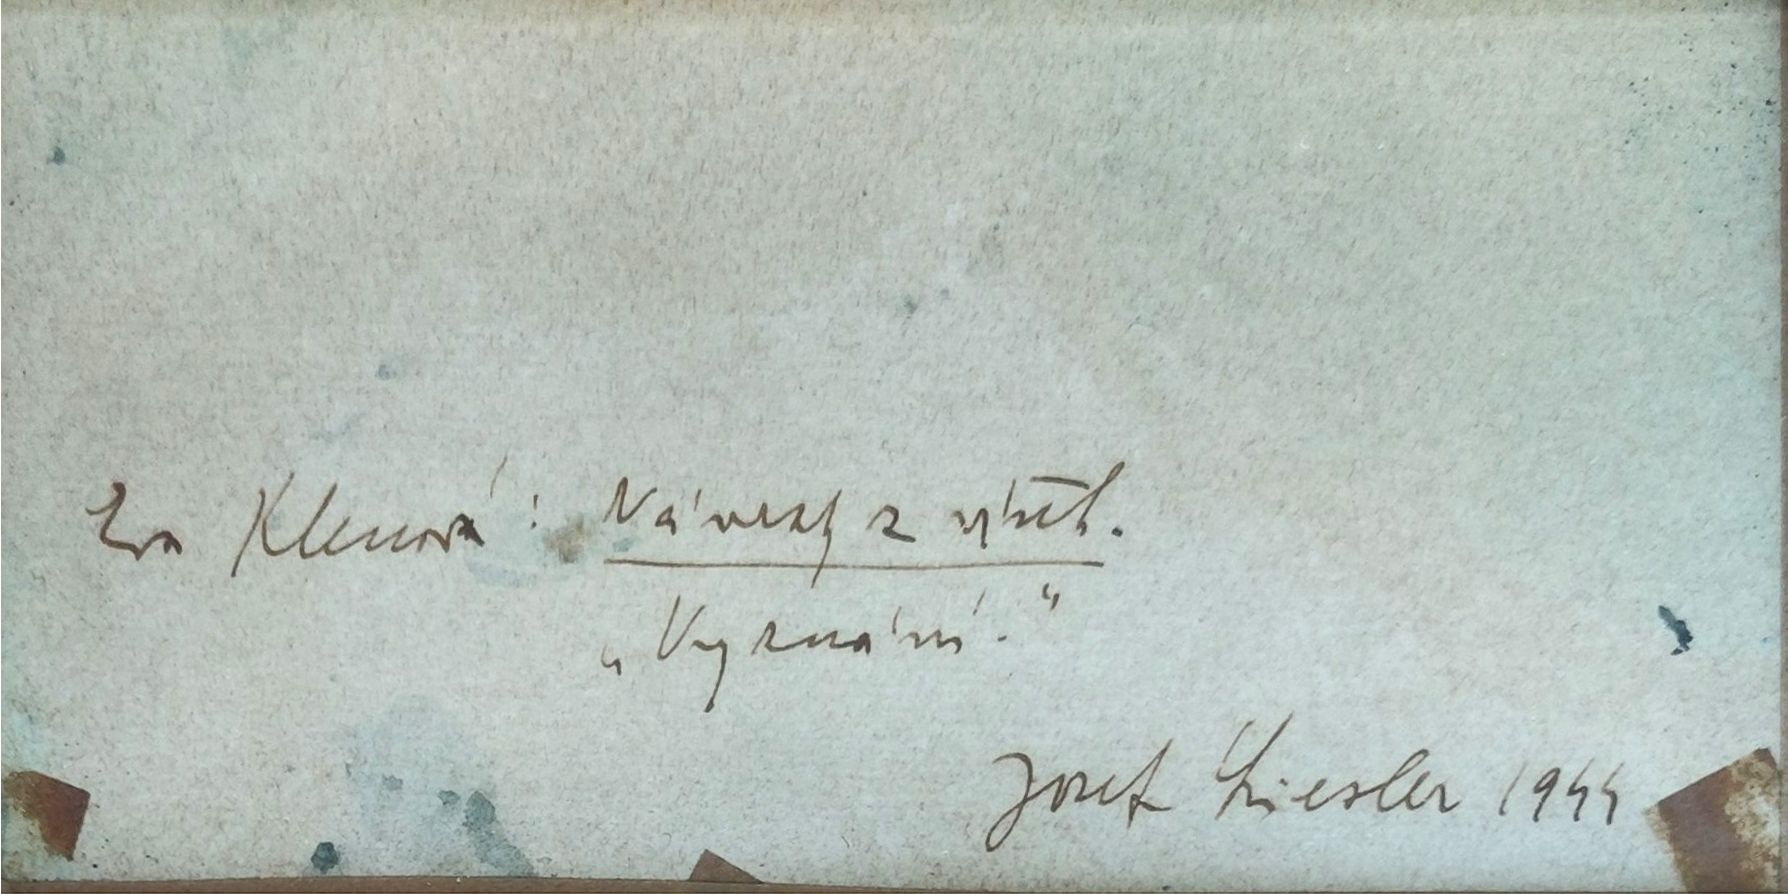 Eva Klenová: Návraty z výšek.
„Vyznání.“
Josef Liesler 1944